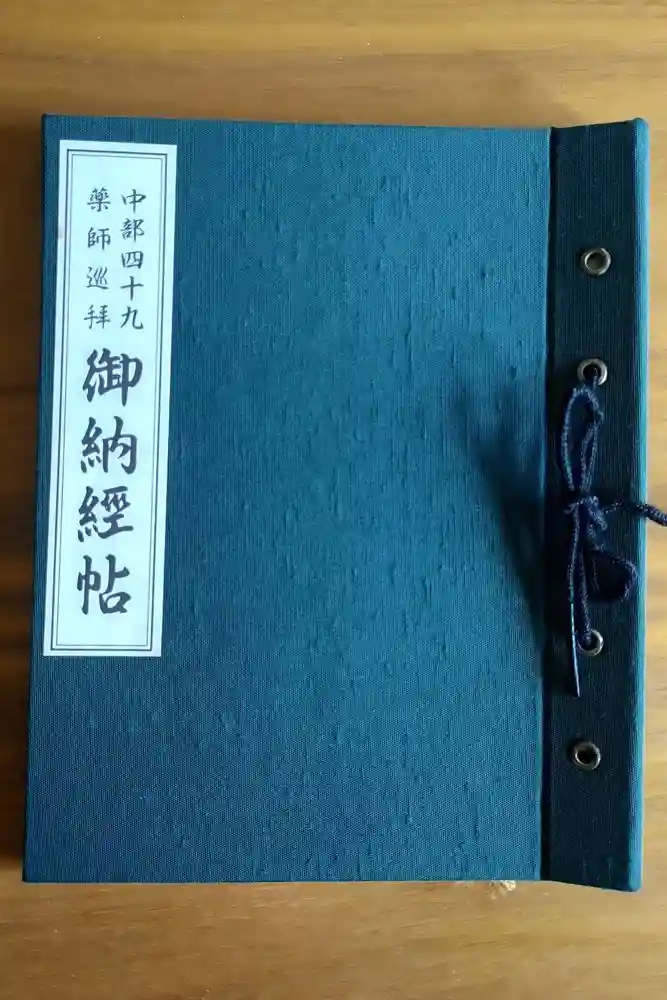 中部四十九
薬師巡拝
御納經帖